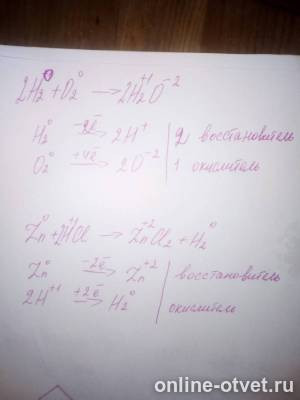 2H₂⁰ + O₂⁰ → 2H₂⁺¹O⁻²
H₂⁰ -2ē→ 2H⁺ | 2 восстановитель
O₂⁰ +4ē→ 2O⁻² | 1 окислитель
Zn⁰ + 2H⁺¹Cl → Zn⁺²Cl₂ + H₂⁰
Zn⁰ -2ē→ Zn⁺² | восстановитель
2H⁺¹ +2ē→ H₂⁰ | окислитель
online-otvet.ru